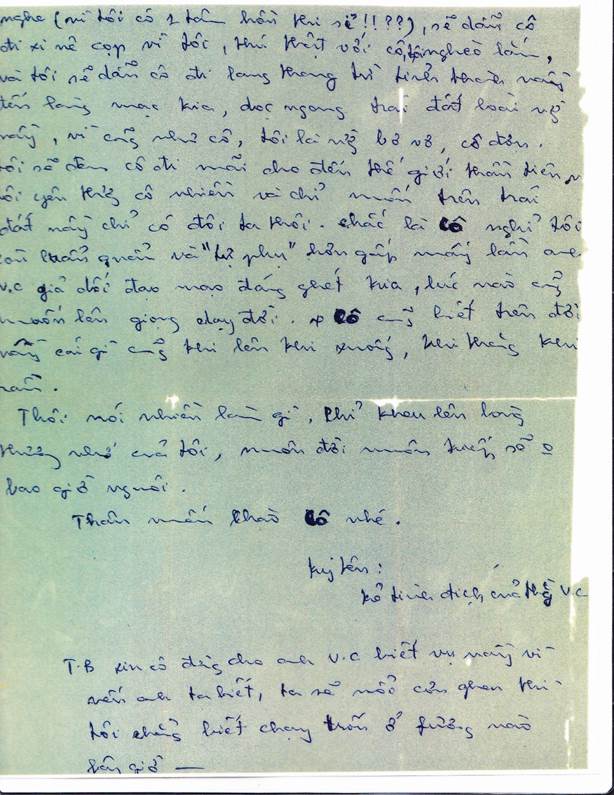 nghe (vì tôi có 1 tâm hồn thi sĩ!!??), sẽ dẫn cô
đi xi nê cọp vì tôi, thú thật với cô, tôi nghèo lắm,
và tôi sẽ dẫn cô đi lang thang từ tỉnh thành nầy
đến làng mạc kia, dọc ngang trái đất loài người
nầy, vì cũng như cô, tôi là người bơ vơ, cô đơn.
tôi sẽ đem cô đi mãi cho đến thế giới thần tiên,
tôi yêu thương cô nhiều và chỉ muốn trên trái
đất nầy chỉ có đôi ta thôi. chắc là cô nghĩ tôi
lẩn quẩn và "tự phụ" hơn gấp mấy lần anh
V.C giả dối đạo mạo đáng ghét kia, lúc nào cũng
muốn lên giọng dạy đời. cô cũng biết trên đời
nầy cái gì cũng khi lên khi xuống, khi thăng khi
trầm.
Thôi nói nhiều làm gì, chỉ lòng
thương nhớ của tôi, muôn đời muôn kiếp sẽ o
bao giờ nguôi.
Thân mến chào cô nhé.
Ký tên:
Kẻ tình địch của thằng V.C
T.B xin cô đừng cho anh V.C biết vụ nầy vì
nếu anh ta biết, ta sẽ nổi cơn ghen thì
tôi chẳng biết chạy trốn ở phương nào
bây giờ —